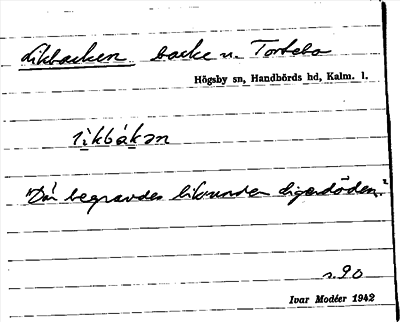 Likbacken backe n. Torbebo
Högsby sn, Handbörds hd, Kalm. l.
lìkbákən
"Där begravdes lik under digerdöden."
s. 90
Ivar Modéer 1942